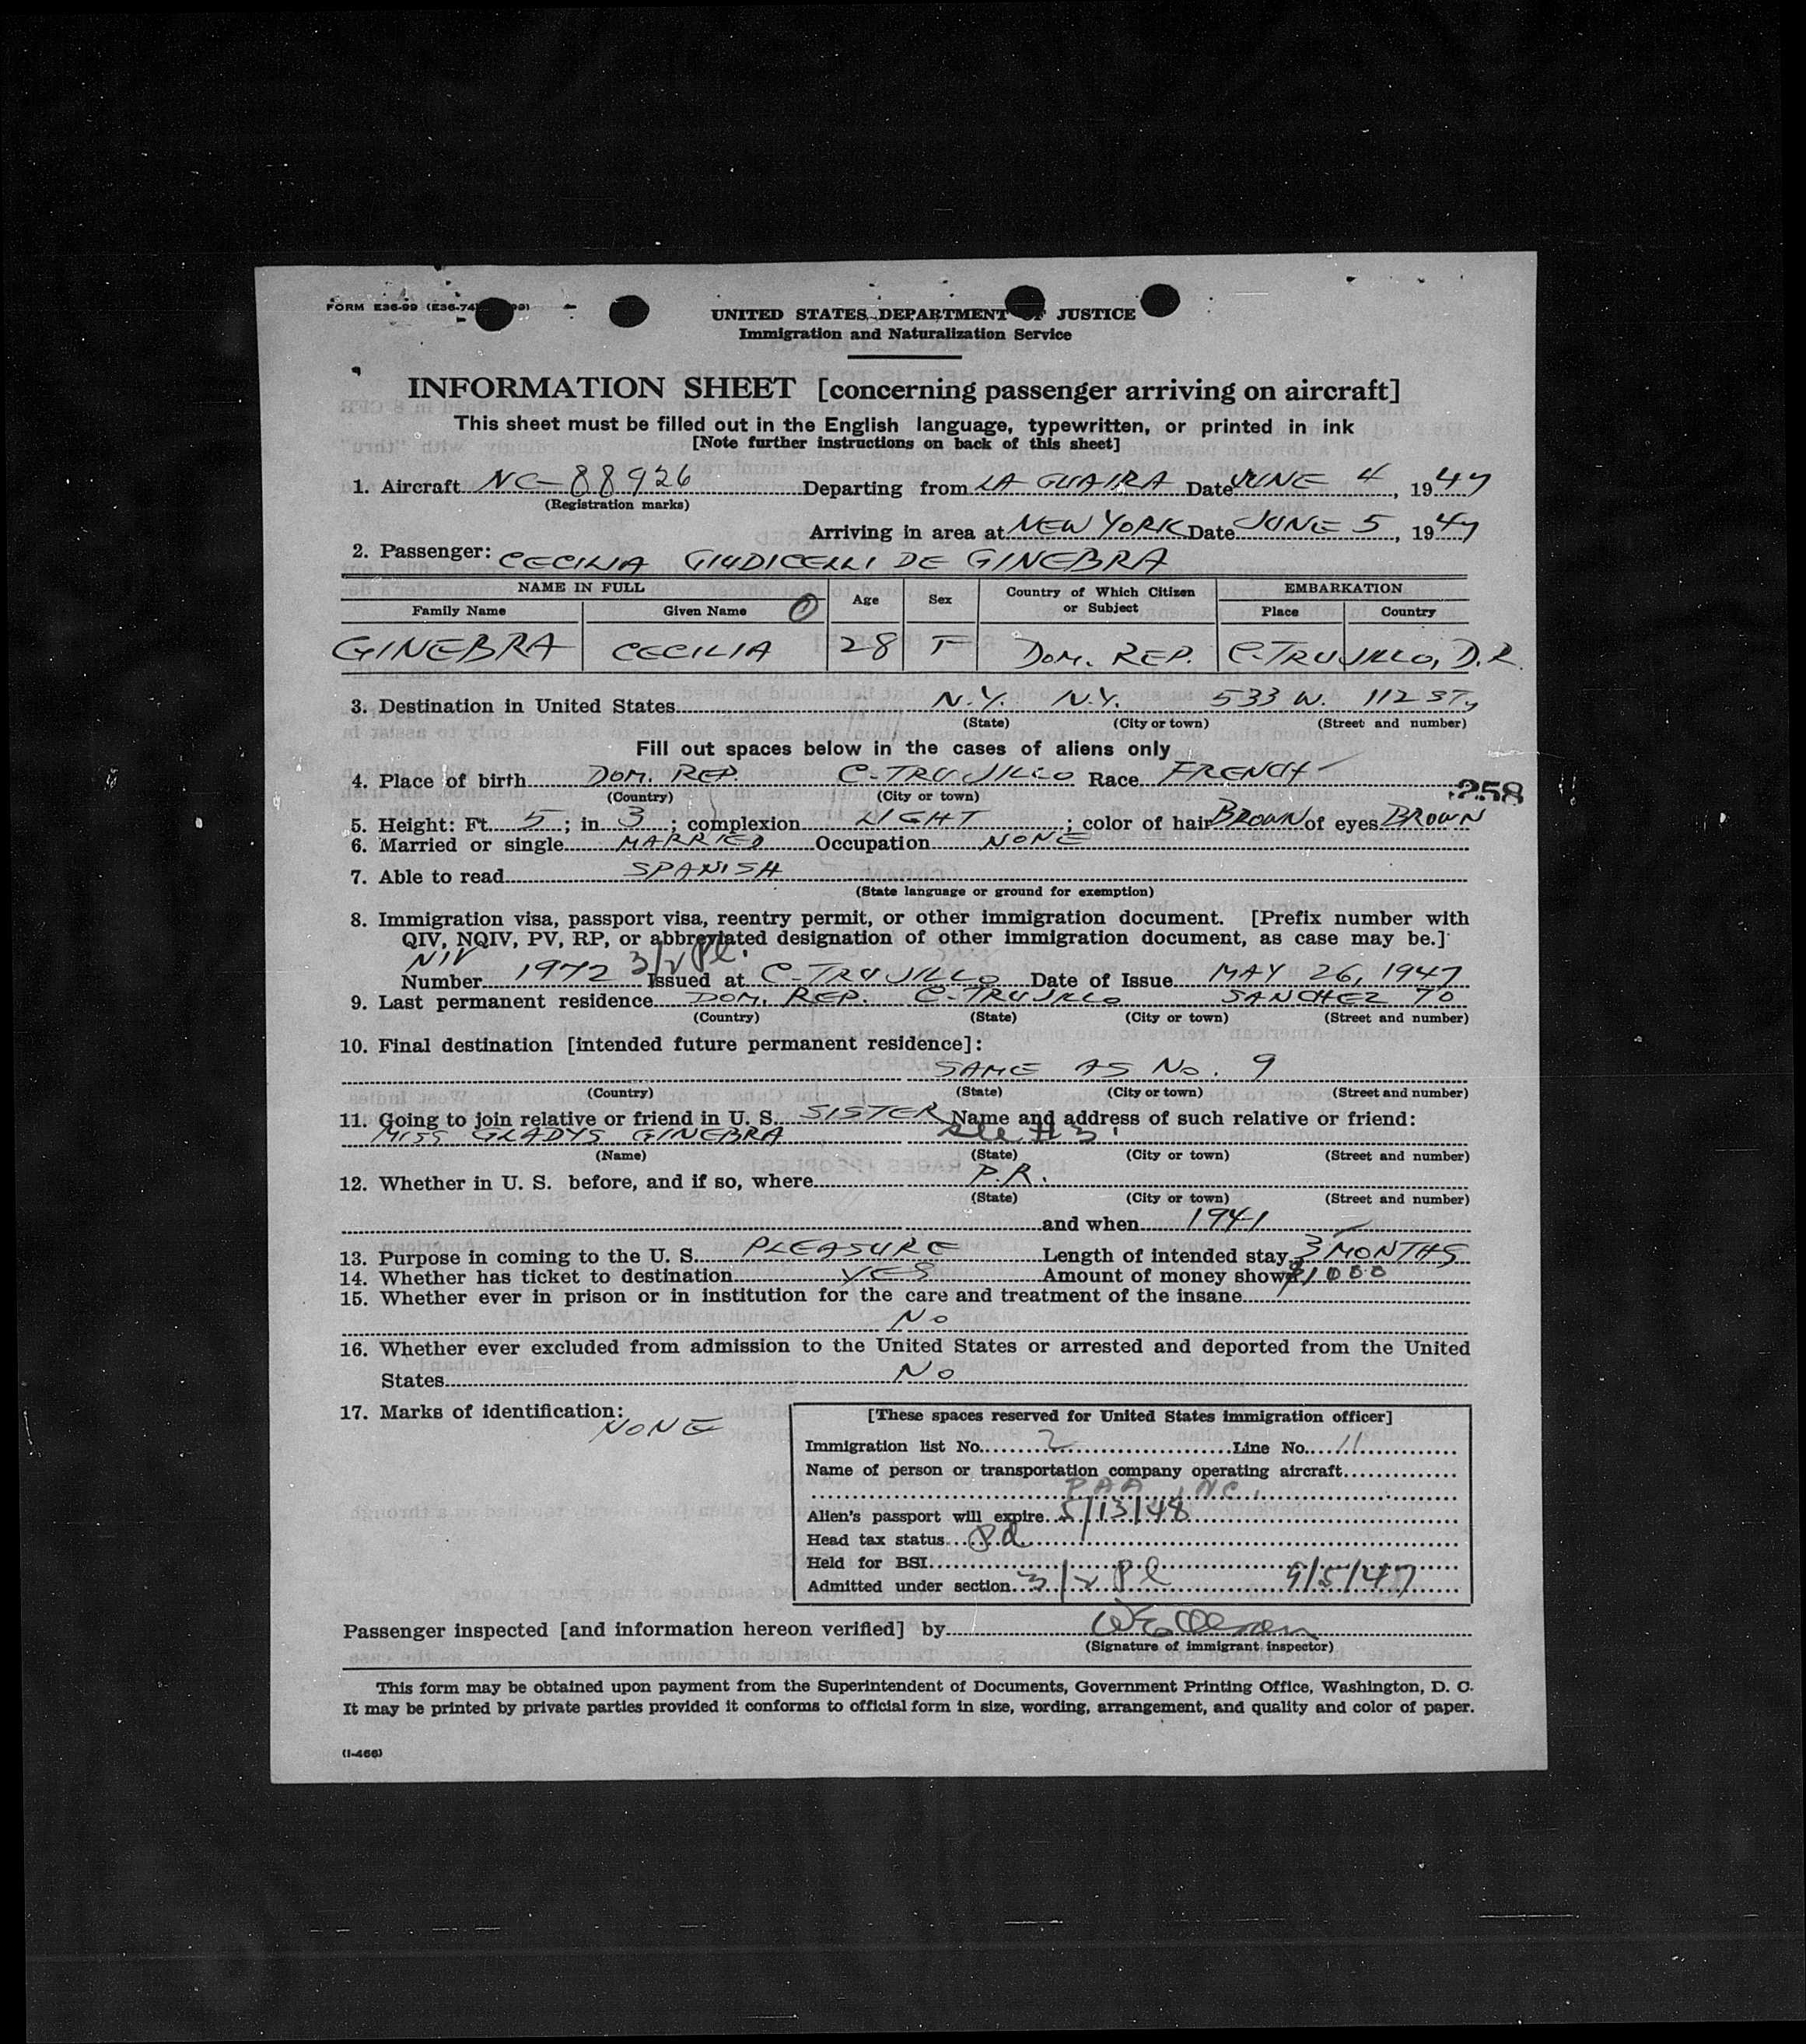 FORM E36-99 (E36-74
UNITED STATES DEPARTMENT OF JUSTICE
Immigration and Naturalization Service
INFORMATION SHEET [concerning passenger arriving on aircraft]
This sheet must be filled out in the English language, typewritten, or printed in ink
[Note further instructions on back of this sheet]
1. Aircraft NC-88926 Departing from LA GUAIRA Date JUNE 4, 1947
(Registration marks)
Arriving in area at NEW YORK Date JUNE 5, 1947
2. Passenger: CECILIA GIUDICELLI DE GINEBRA
NAME IN FULL Age Sex Country of Which Citizen or Subject EMBARKATION
Family Name Given Name Place Country
GINEBRA CECILIA 28 F DOM. REP. C-TRUJILLO, D.R.
3. Destination in United States N.Y. N.Y. 533 W. 112 ST,
(State) (City or town) (Street and number)
Fill out spaces below in the cases of aliens only
4. Place of birth DOM. REP. C-TRUJILLO Race FRENCH
(Country) (City or town)
258
5. Height: Ft. 5; in 3; complexion LIGHT; color of hair BROWN of eyes BROWN
6. Married or single MARRIED Occupation NONE
7. Able to read SPANISH
(State language or ground for exemption)
8. Immigration visa, passport visa, reentry permit, or other immigration document. [Prefix number with
QIV, NQIV, PV, RP, or abbreviated designation of other immigration document, as case may be.]
NIV 3/2 Pl.
Number 1972 Issued at C-TRUJILLO Date of Issue MAY 26, 1947
9. Last permanent residence DOM. REP. C-TRUJILLO SANCHEZ 70
(Country) (State) (City or town) (Street and number)
10. Final destination [intended future permanent residence]:
SAME AS No. 9
(Country) (State) (City or town) (Street and number)
11. Going to join relative or friend in U. S. SISTER Name and address of such relative or friend:
MISS GLADYS GINEBRA see # 3
(Name) (State) (City or town) (Street and number)
12. Whether in U. S. before, and if so, where P.R.
(State) (City or town) (Street and number)
and when 1941
13. Purpose in coming to the U. S. PLEASURE Length of intended stay 3 MONTHS
14. Whether has ticket to destination YES Amount of money shown $1000
15. Whether ever in prison or in institution for the care and treatment of the insane
No
16. Whether ever excluded from admission to the United States or arrested and deported from the United
States No
17. Marks of identification:
NONE
[These spaces reserved for United States immigration officer]
Immigration list No. 2 Line No. 11
Name of person or transportation company operating aircraft
PAA INC.
Alien's passport will expire 5/13/48
Head tax status Pd
Held for BSI
Admitted under section 3/2 Pl 9/5/47
Passenger inspected [and information hereon verified] by
(Signature of immigrant inspector)
This form may be obtained upon payment from the Superintendent of Documents, Government Printing Office, Washington, D. C.
It may be printed by private parties provided it conforms to official form in size, wording, arrangement, and quality and color of paper.
(I-466)